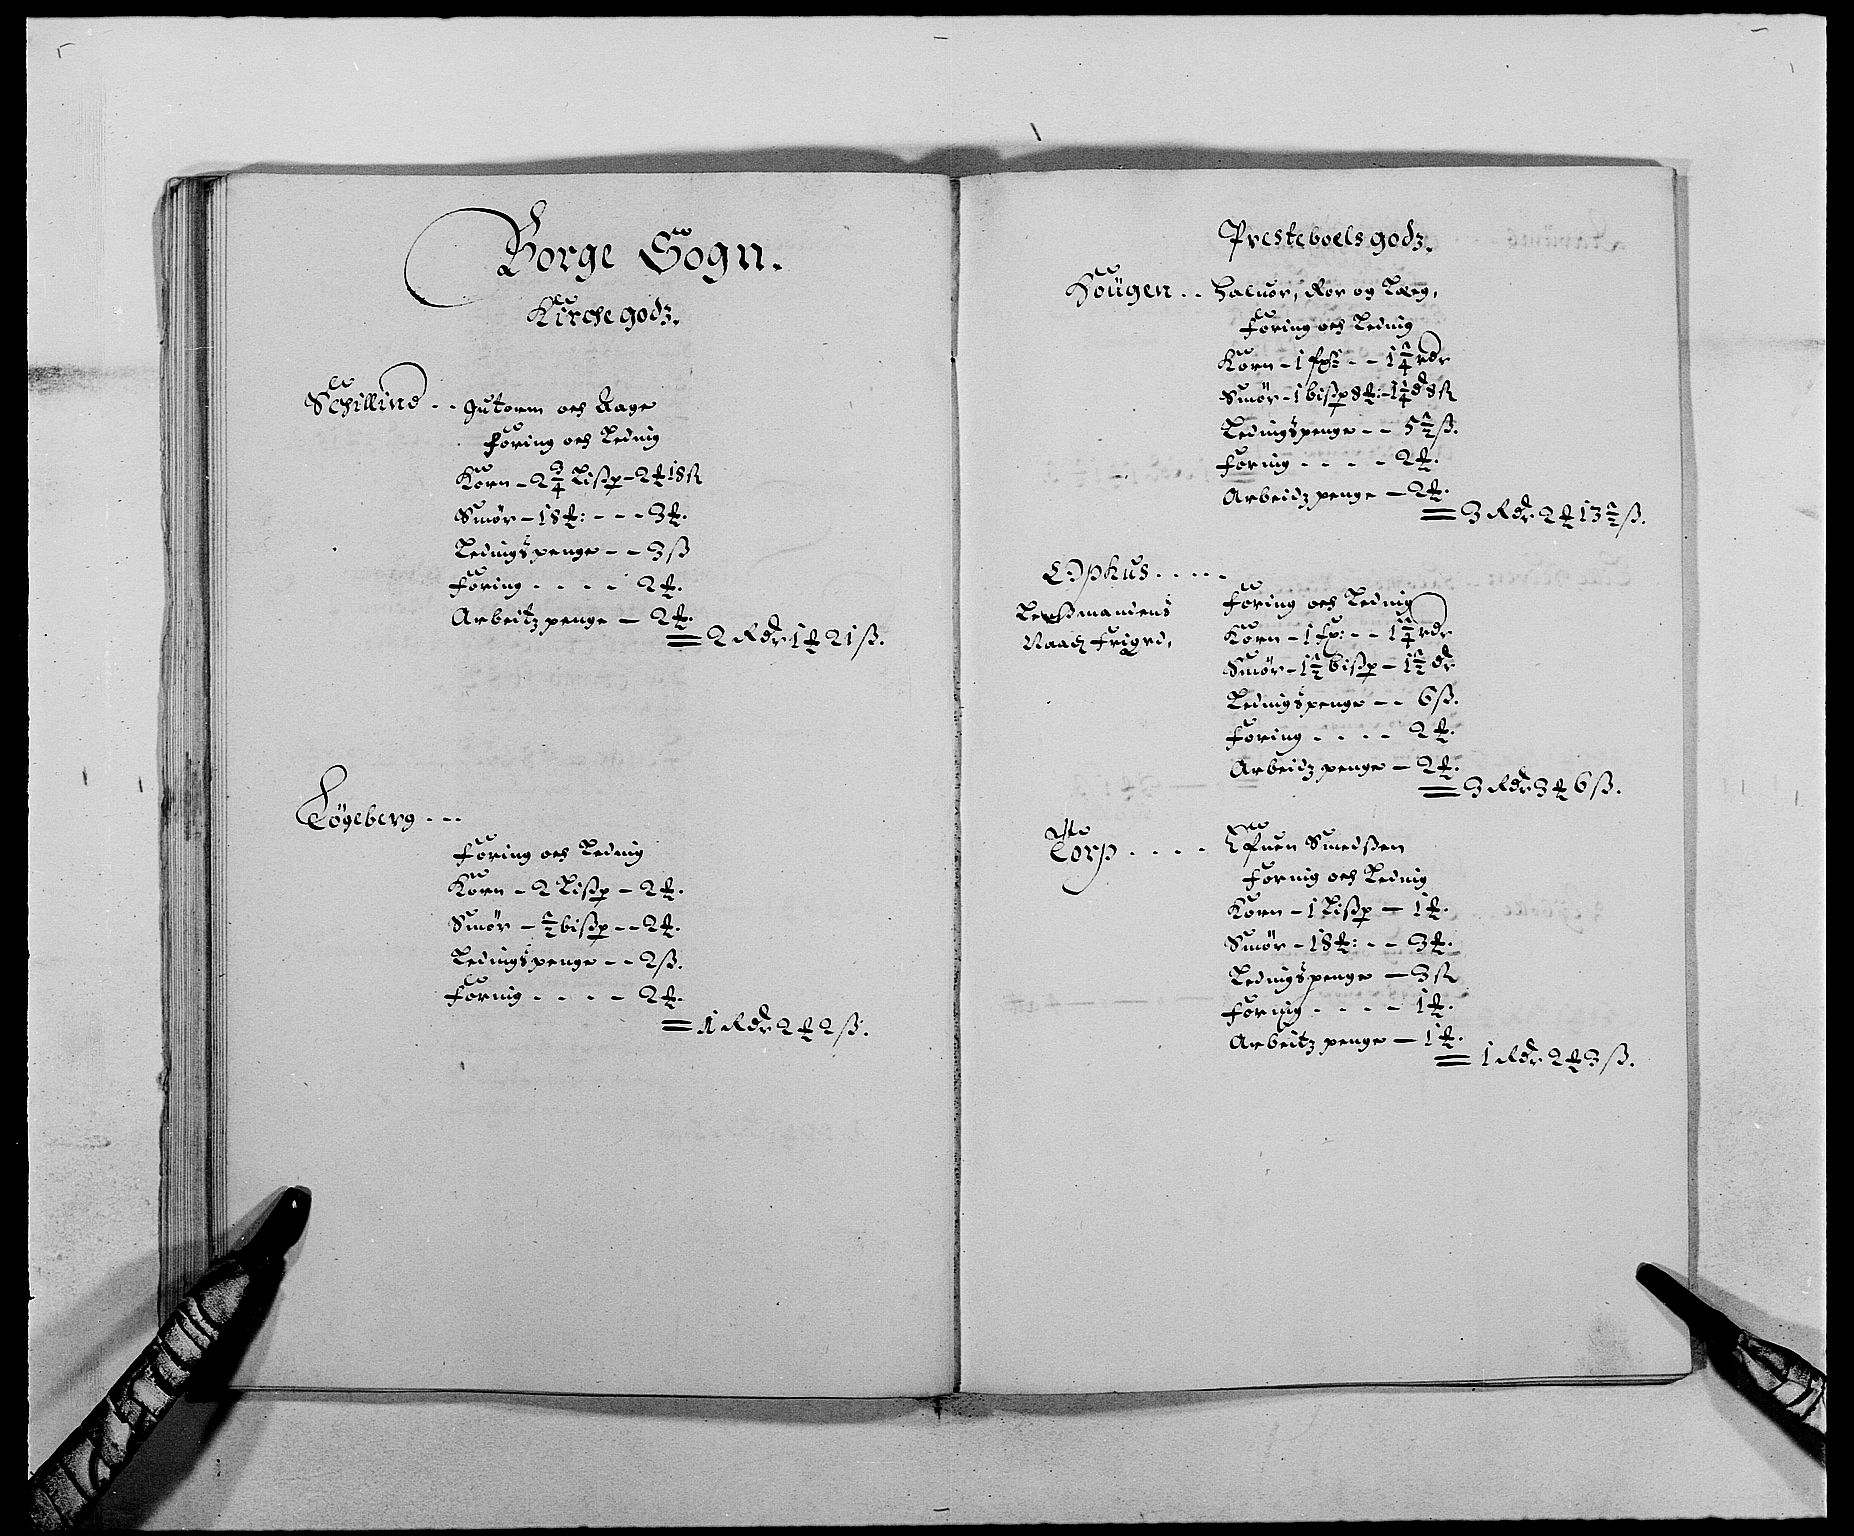 Borge Sogn.
Kirche godz.
Schillind - - Gutorm och Aage
Foring och Leding
Korn - 2 3/4 Lißp - 2 ₰ 18 ß
Smør - 18 ₰: - - - 3 ₰.
Ledingspenge - - 3 ß
Foring - - - - 2 ₰.
Arbeitz penge - 2 ₰.
= 2 Rdr 1 ₰ 21 ß.
Töyeberg - - -
Foring och Leding
Korn - 2 Lißp - 2 ₰.
Smør - 1/2 bißp - - 2 ₰.
Ledingspenge - - 2 ß.
Foring - - - - 2 ₰.
= 1 Rdr 2 ₰ 2 ß.
Presteboels godz.
Hougen - - Haluor, Ror og
Foring och Leding
Korn - 1 - - 1 1/4 rdr
Smør - 1 bißp 8 ₰: - 1 1/4 dr 8 ß
Ledingspenge - - 5 1/2 ß.
Foring - - - - 2 ₰.
Arbeidz penge - 2 ₰.
= 3 Rdr 2 ₰ 13 1/2 ß.
Ophus - - - - -
Foring och Leding
Lenßmandens
Korn - 1 fp: - - 1 1/4 rdr
Naadz frigrd,
Smør - 1 1/2 bißp - 1 1/2 dr
Ledingspenge - - 6 ß.
Foring - - - - 2 ₰.
Arbeidz penge - 2 ₰.
= 3 Rdr 3 ₰ 6 ß.
Torp - - - - Efuen Smedßen
Foring och Leding
Korn - 1 Lißp - 1 ₰.
Smør - 18 ₰: - - 3 ₰.
Ledingspenge - 3 ß
Foring - - - - 1 ₰.
Arbeitz penge - 1 ₰.
= 1 Rdr 2 ₰ 3 ß.